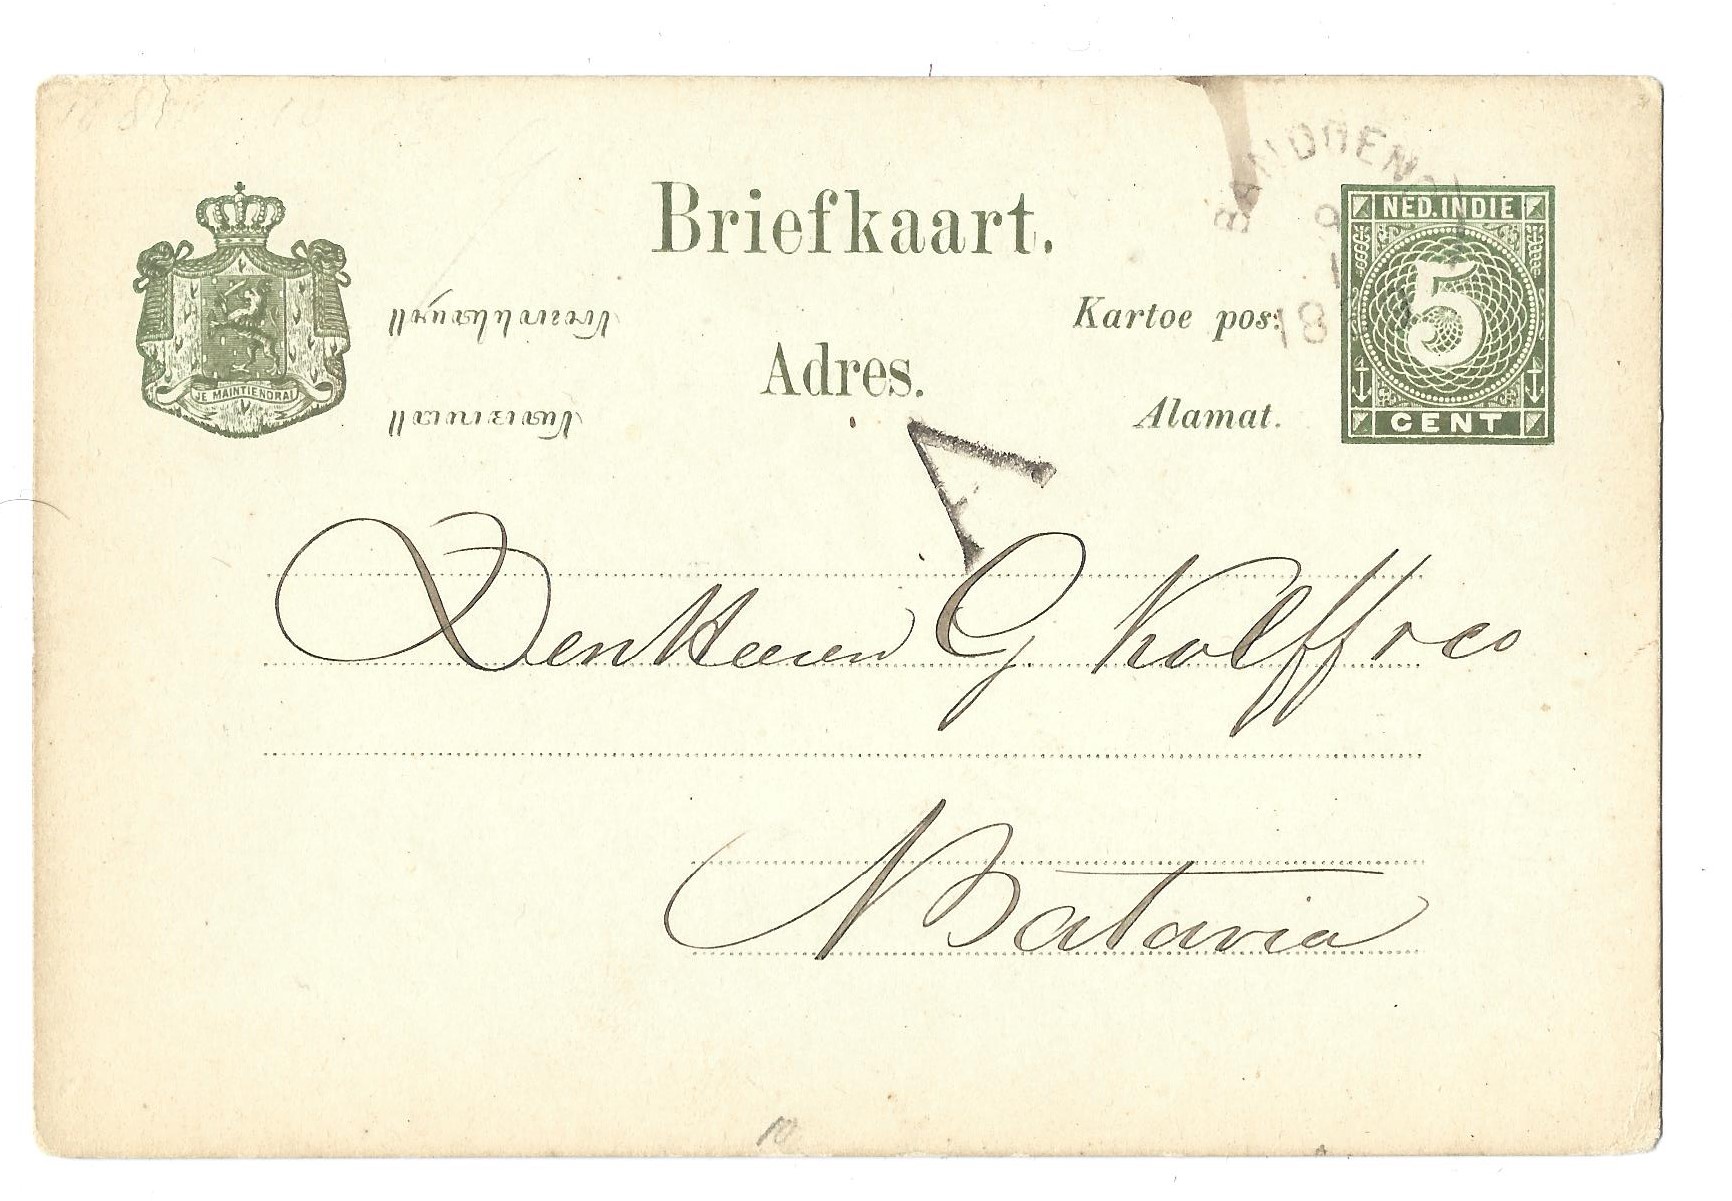 Briefkaart.
NED.INDIE
5
CENT
Kartoe pos.
Adres.
Alamat.
JE MAINTIENDRAI
9
1
18
A
Den Heeren G Kolff & Co
Batavia
10